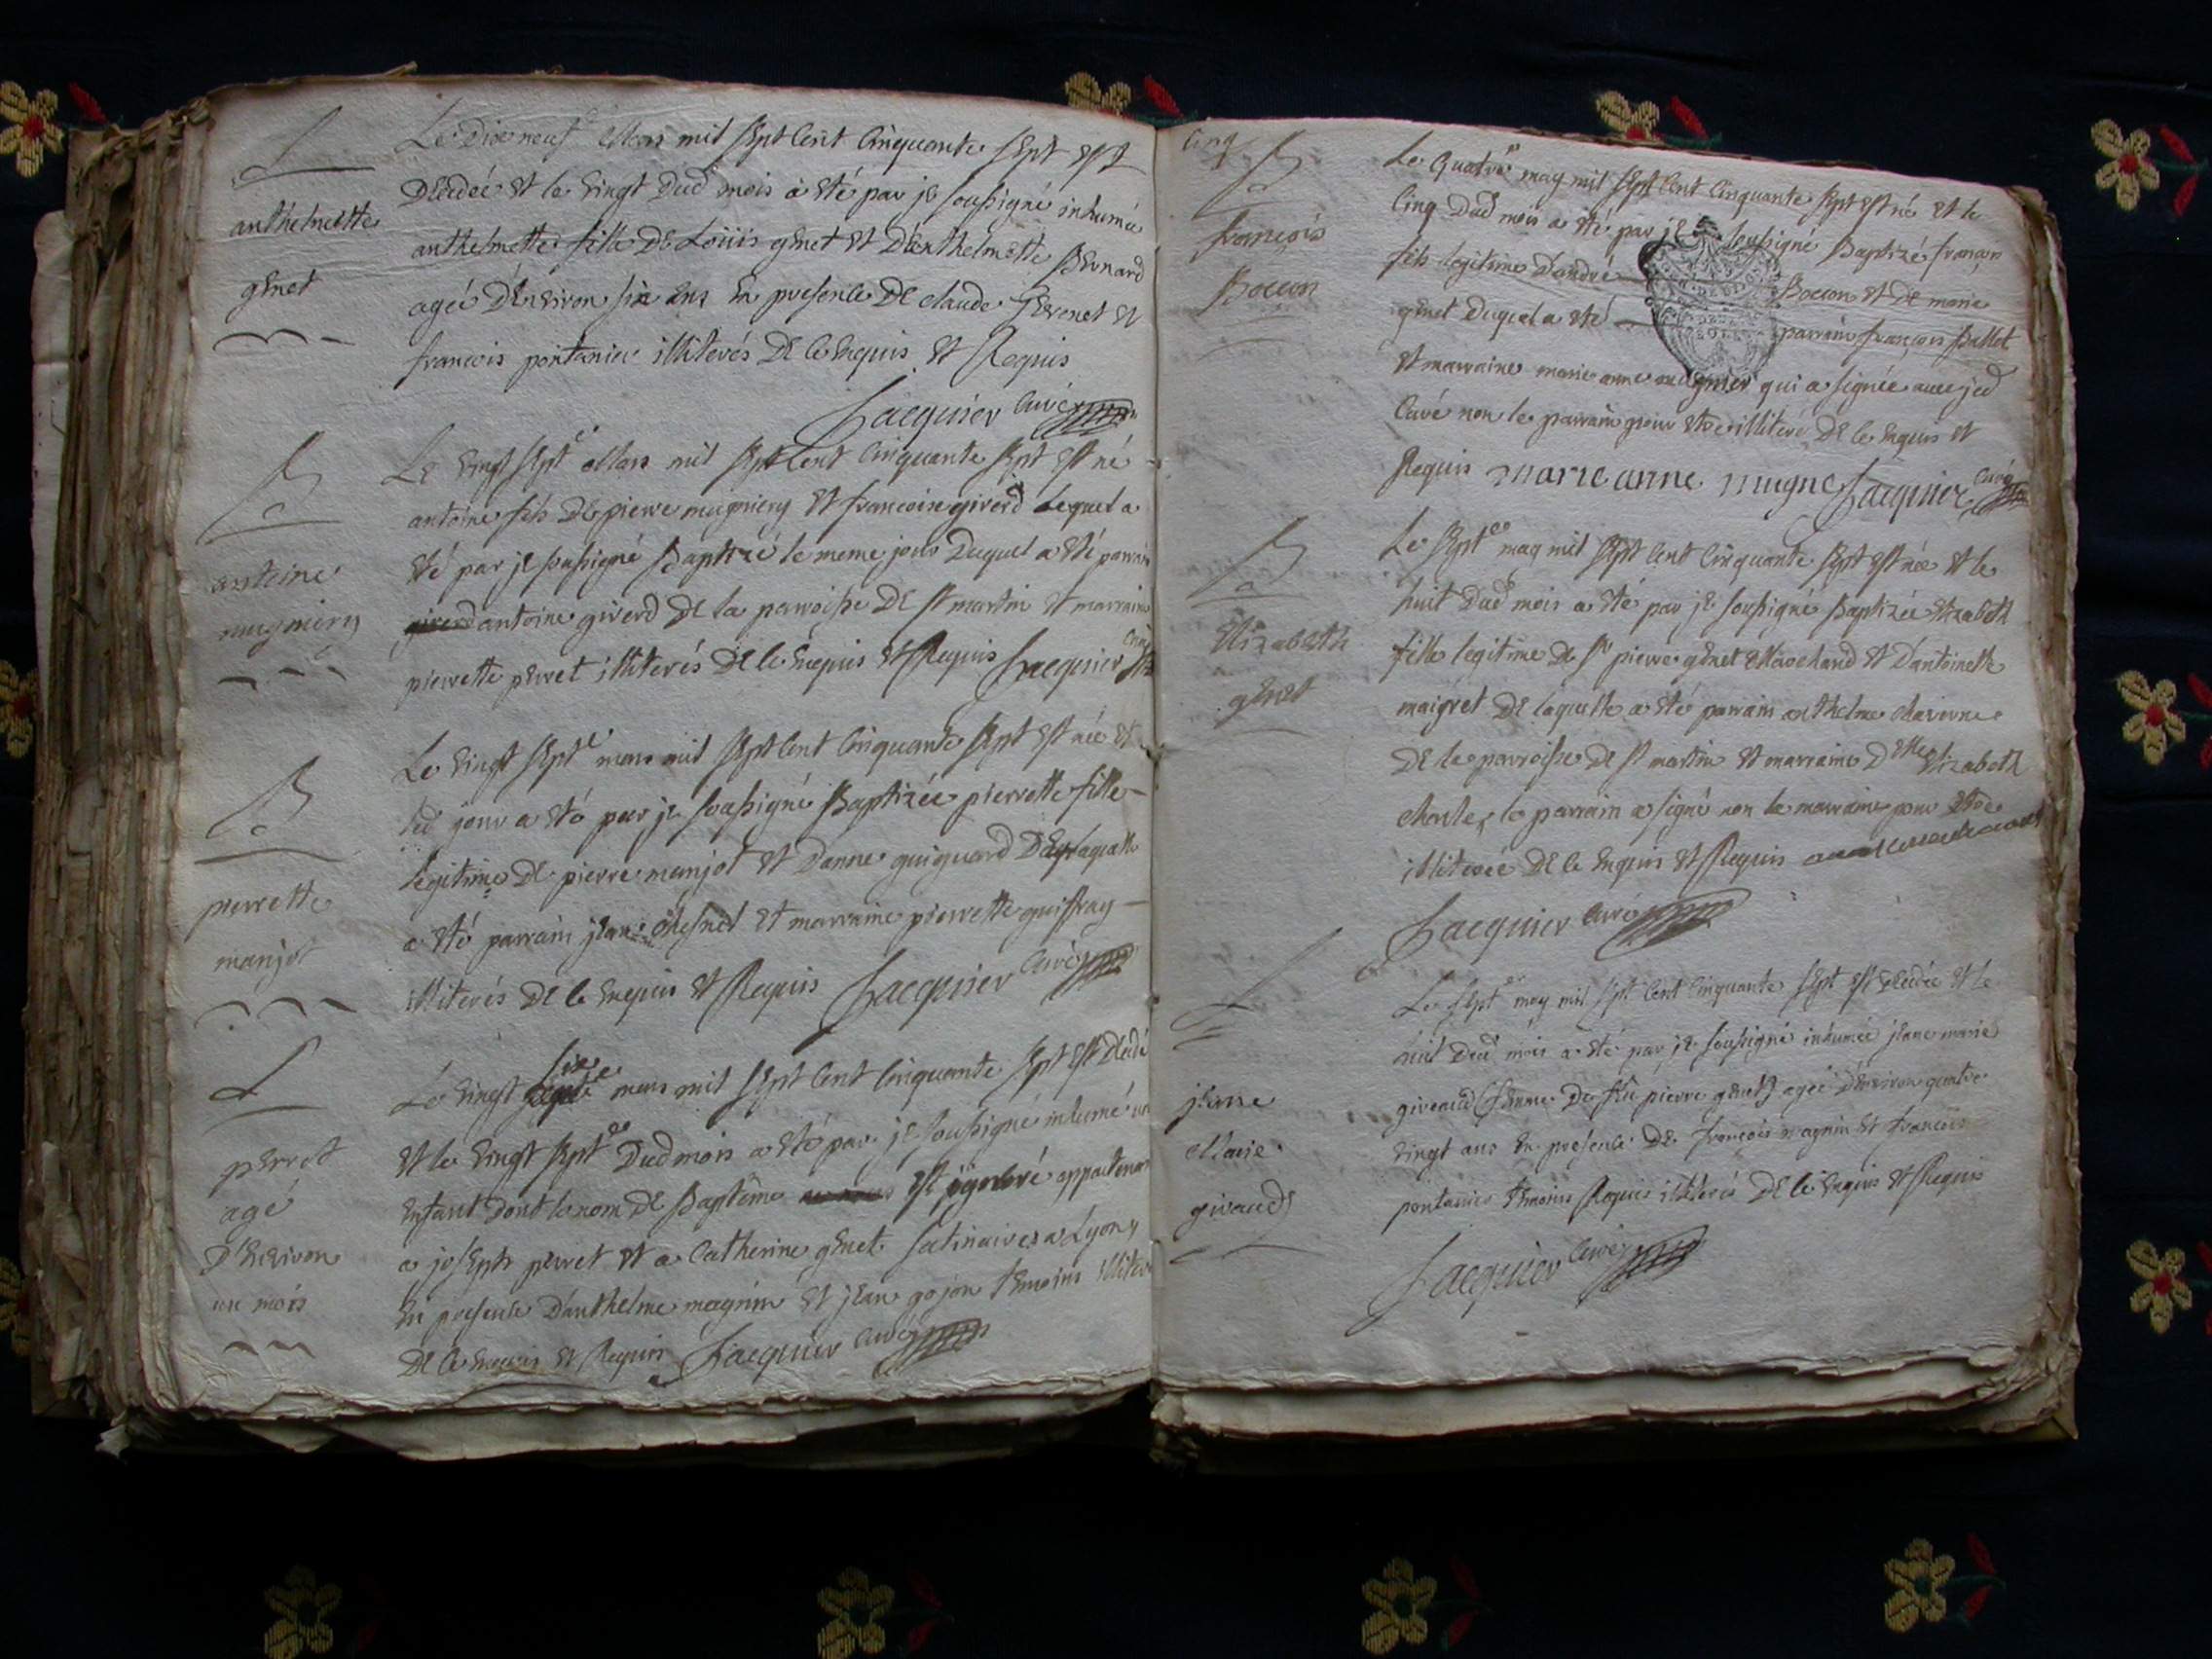 anthelmette
genet
Le Dixe neufe Mars mil sept Cent Cinquante sept est
Decedée et le vingt Dud mois à eté par je soussigné inhumée
anthelmette fille De Loüis genet et D'enthelmette Bernard
ageé D'environ six ans en presence De claude Perenet et
francois pontanier illiterés De ce enquis et Requis
Jacquier Curé
antoine
mugniery
Le vingt septe Mars mil sept Cent Cinquante sept est né
antoine fils De pierre mugniery et francoise giverd Lequel a
eté par je soussigné Baptizé le meme jour Duquel a eté parrain
antoine giverd De la parroisse De st martin et marraine
pierrette perret illiterés De ce enquis et Requis Jacquier Curé
pierrette
manjot
Le vingt septe mars mil sept Cent Cinquante sept est née et
led jour a eté par je soussigné Baptizée pierrette fille
legitime De pierre manjot et Danne guiguard De laquelle
a eté parrain jean Chesnel et marraine pierrette guiffray
illiterés De ce enquis et Requis Jacquier Curé
perret
agé
D'environ
un mois
Le vingt sixe mars mil sept Cent Cinquante sept est Decedé
et le vingt septe Dud mois a eté par je soussigné inhumé un
enfant Dont le nom De Baptême est ignoré appartenant
a joseph perret et a Catherine genet satinaires a Lyon
en presence D'anthelme magnin et jean gojon temoins illiterés
De ce enquis et Requis Jacquier Curé
Cinq
francois
Bocion
Le quatre may mil sept Cent Cinquante sept est né et le
Cinq Dud mois a eté par je soussigné Baptizé francois
fils legitime D'andré Bocion et De marie
genet Duquel a eté parrain francois Ballet
et marraine marie anne mugnier qui a signée avec jed
Curé non le parrain pour etre illiteré De ce enquis et
Requis marie anne mugne Jacquier Curé
Elizabeth
genet
Le septe may mil sept Cent Cinquante sept est née et le
huit Dud mois a eté par je soussigné Baptizée Elizabeth
fille legitime De sr pierre genet Marchand et D'antoinette
maigret De laquelle a eté parrain anthelme
De la parroisse De st martin et marraine Delle Elizabeth
le parrain a signé non la marraine pour etre
illiterée De ce enquis et Requis
Jacquier Curé
jeane
Marie
giveaud
Le septe may mil sept Cent Cinquante sept est Decedée et le
huit Dud mois a eté par je soussigné inhumée jeane marie
giveaud (femme De feu pierre genet) ageé D'environ quatre
vingt ans en presence De francois magnin et francois
pontanier temoins Requis illiterés De ce enquis et Requis
Jacquier Curé